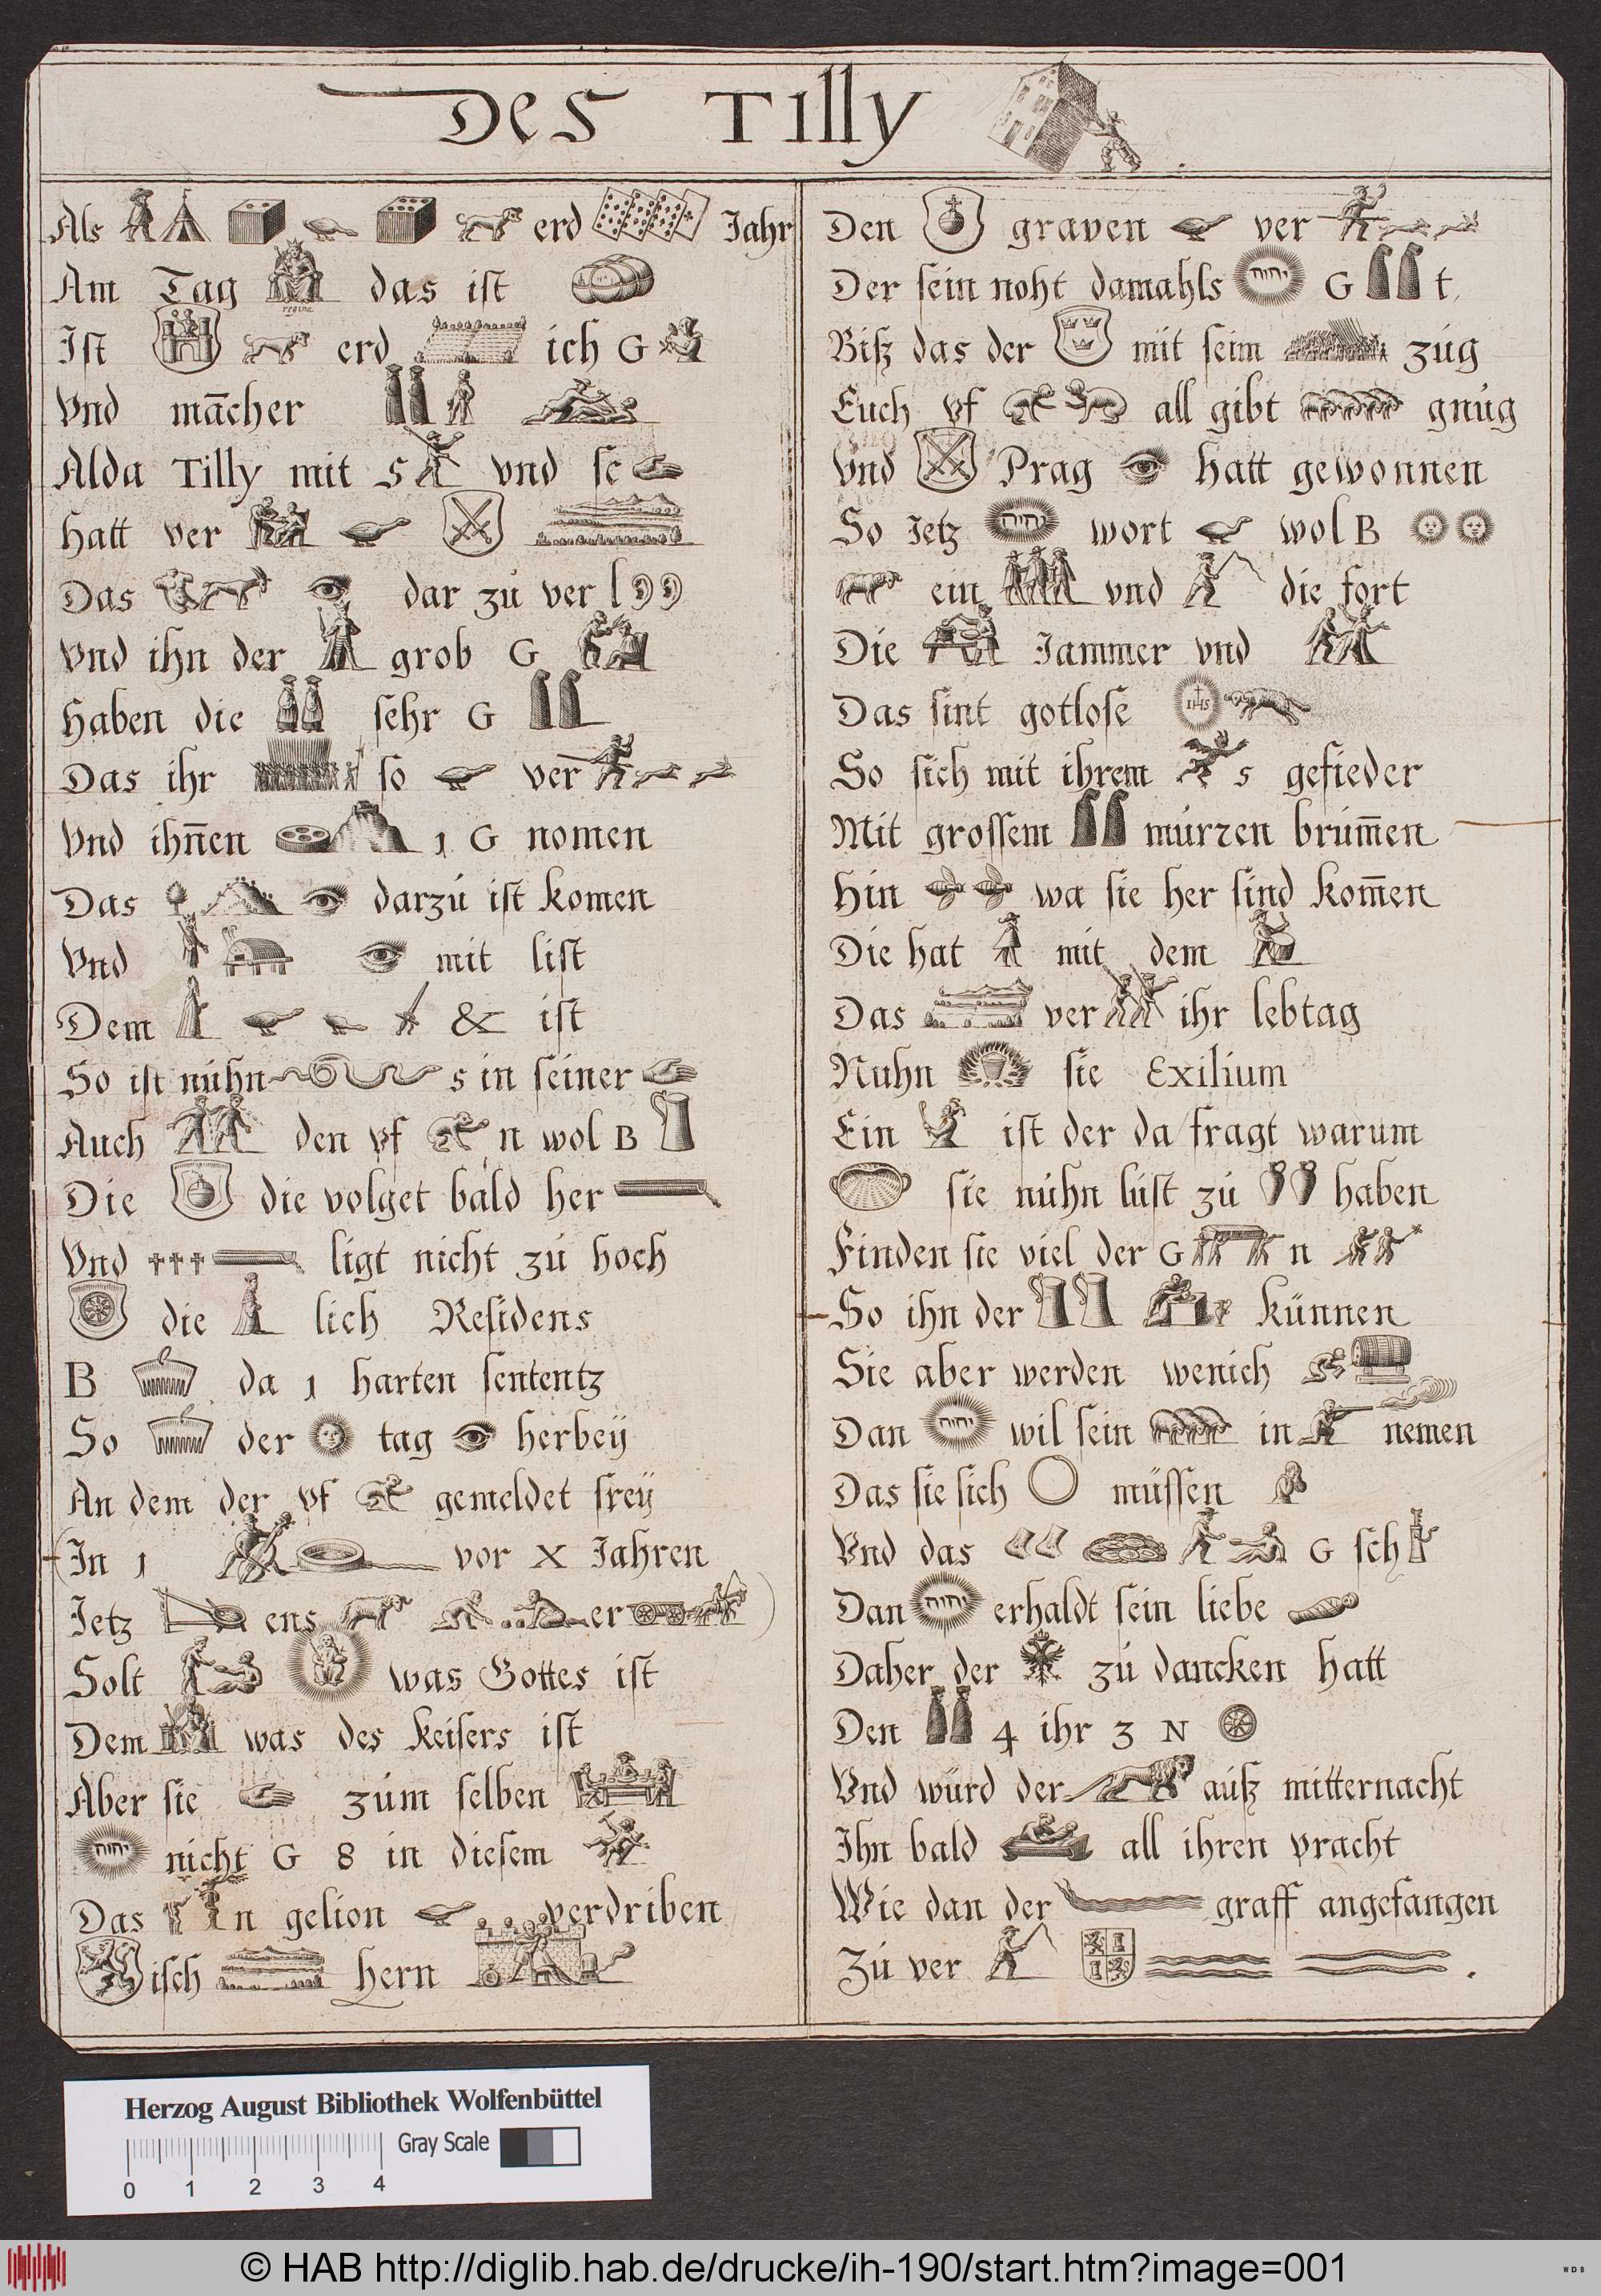 Des Tilly
Als erd Jahr
Am Tag das ist
regina
Ist erd ich G
Vnd mācher
Alda Tilly mit S vnd se
Hatt ver
Das dar zu ver l 9 9
Vnd ihn der grob G
Haben die sehr G
Das ihr so ver
Vnd ihn̄en 1 G nomen
Das darzu ist komen
Vnd mit list
Dem & ist
So ist nuhn s in seiner
Auch den pf n wol B
Die die volget bald her
Vnd ligt nicht zu hoch
die lich Residens
B da 1 harten sententz
So der tag herbeÿ
An dem der pf gemeldet freÿ
(In 1 vor X Jahren
Jetz ens er )
Solt was Gottes ist
Dem was des Keisers ist
Aber sie zum selben
יהוה nicht G 8 in diesem
Das n gelion verdriben
isch hern
Den graven ver
Der sein noht damahls יהוה G t
Bisz das der mit seim zug
Euch pf all gibt gnug
Vnd Prag hatt gewonnen
So Jetz יהוה wort wol B
ein vnd die fort
Die Jammer vnd
Das sint gotlose IHS
So sich mit ihrem s gefieder
Mit grossem murren brum̄en
Hin wa sie her sind kom̄en
Die hat mit dem
Das ver ihr lebtag
Nuhn sie Exilium
Ein ist der da fragt warum
sie nuhn lust zu haben
Finden sie viel der G n
So ihn der künnen
Sie aber werden wenich
Dan יהוה wil sein in nemen
Das sie sich müssen
Vnd das G sch
Dan יהוה erhaldt sein liebe
Daher der zu dancken hatt
Den 4 ihr 3 N
Vnd würd der ausz mitternacht
Ihn bald all ihren pracht
Wie dan der graff angefangen
Zu ver .
Herzog August Bibliothek Wolfenbüttel
Gray Scale
0 1 2 3 4
© HAB http://diglib.hab.de/drucke/ih-190/start.htm?image=001
WDB